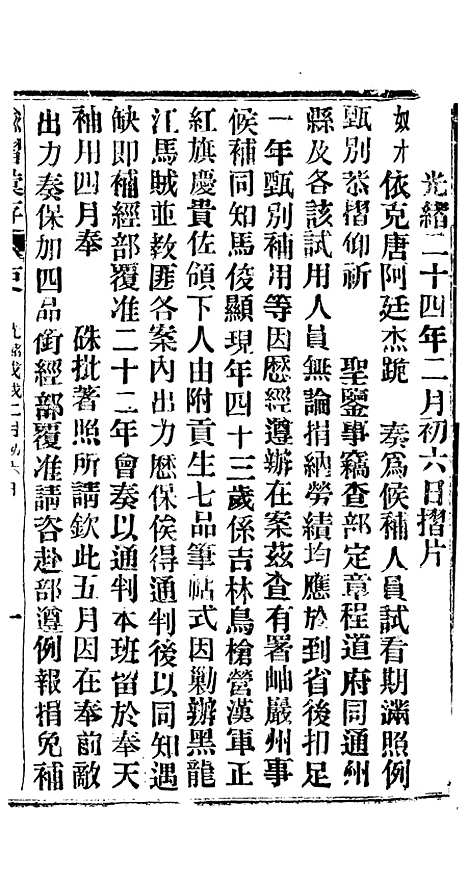 光緒二十四年二月初六日摺片
奴才依克唐阿廷杰跪　奏爲候補人員試看期滿照例
甄別恭摺仰祈　聖鑒事竊查部定章程道府同通州
縣及各該試用人員無論捐納勞績均應於到省後扣足
一年甄別補用等因歷經遵辦在案茲查有署岫巖州事
候補同知馬俊顯現年四十三歲係吉林鳥槍營漢軍正
紅旗慶貴佐領下人由附貢生七品筆帖式因勦辦黑龍
江馬賊並教匪各案內出力歷保俟得通判後以同知遇
缺卽補經部覆准二十二年會奏以通判本班留於奉天
補用四月奉　硃批著照所請欽此五月因在奉前敵
出力奏保加四品銜經部覆准請咨赴部遵例報捐免補
光緒戊戌二月初六日
一